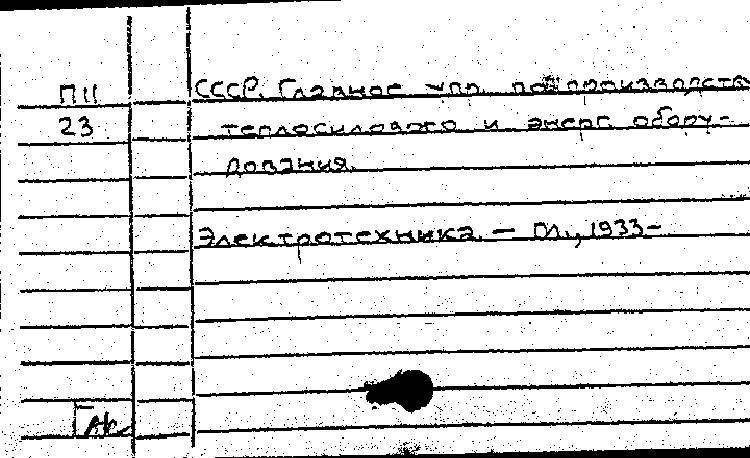 П11
23
СССР. Главное упр. по производств
теплосилового и энерг. обору-
дования.
Электротехника. – М., 1933–